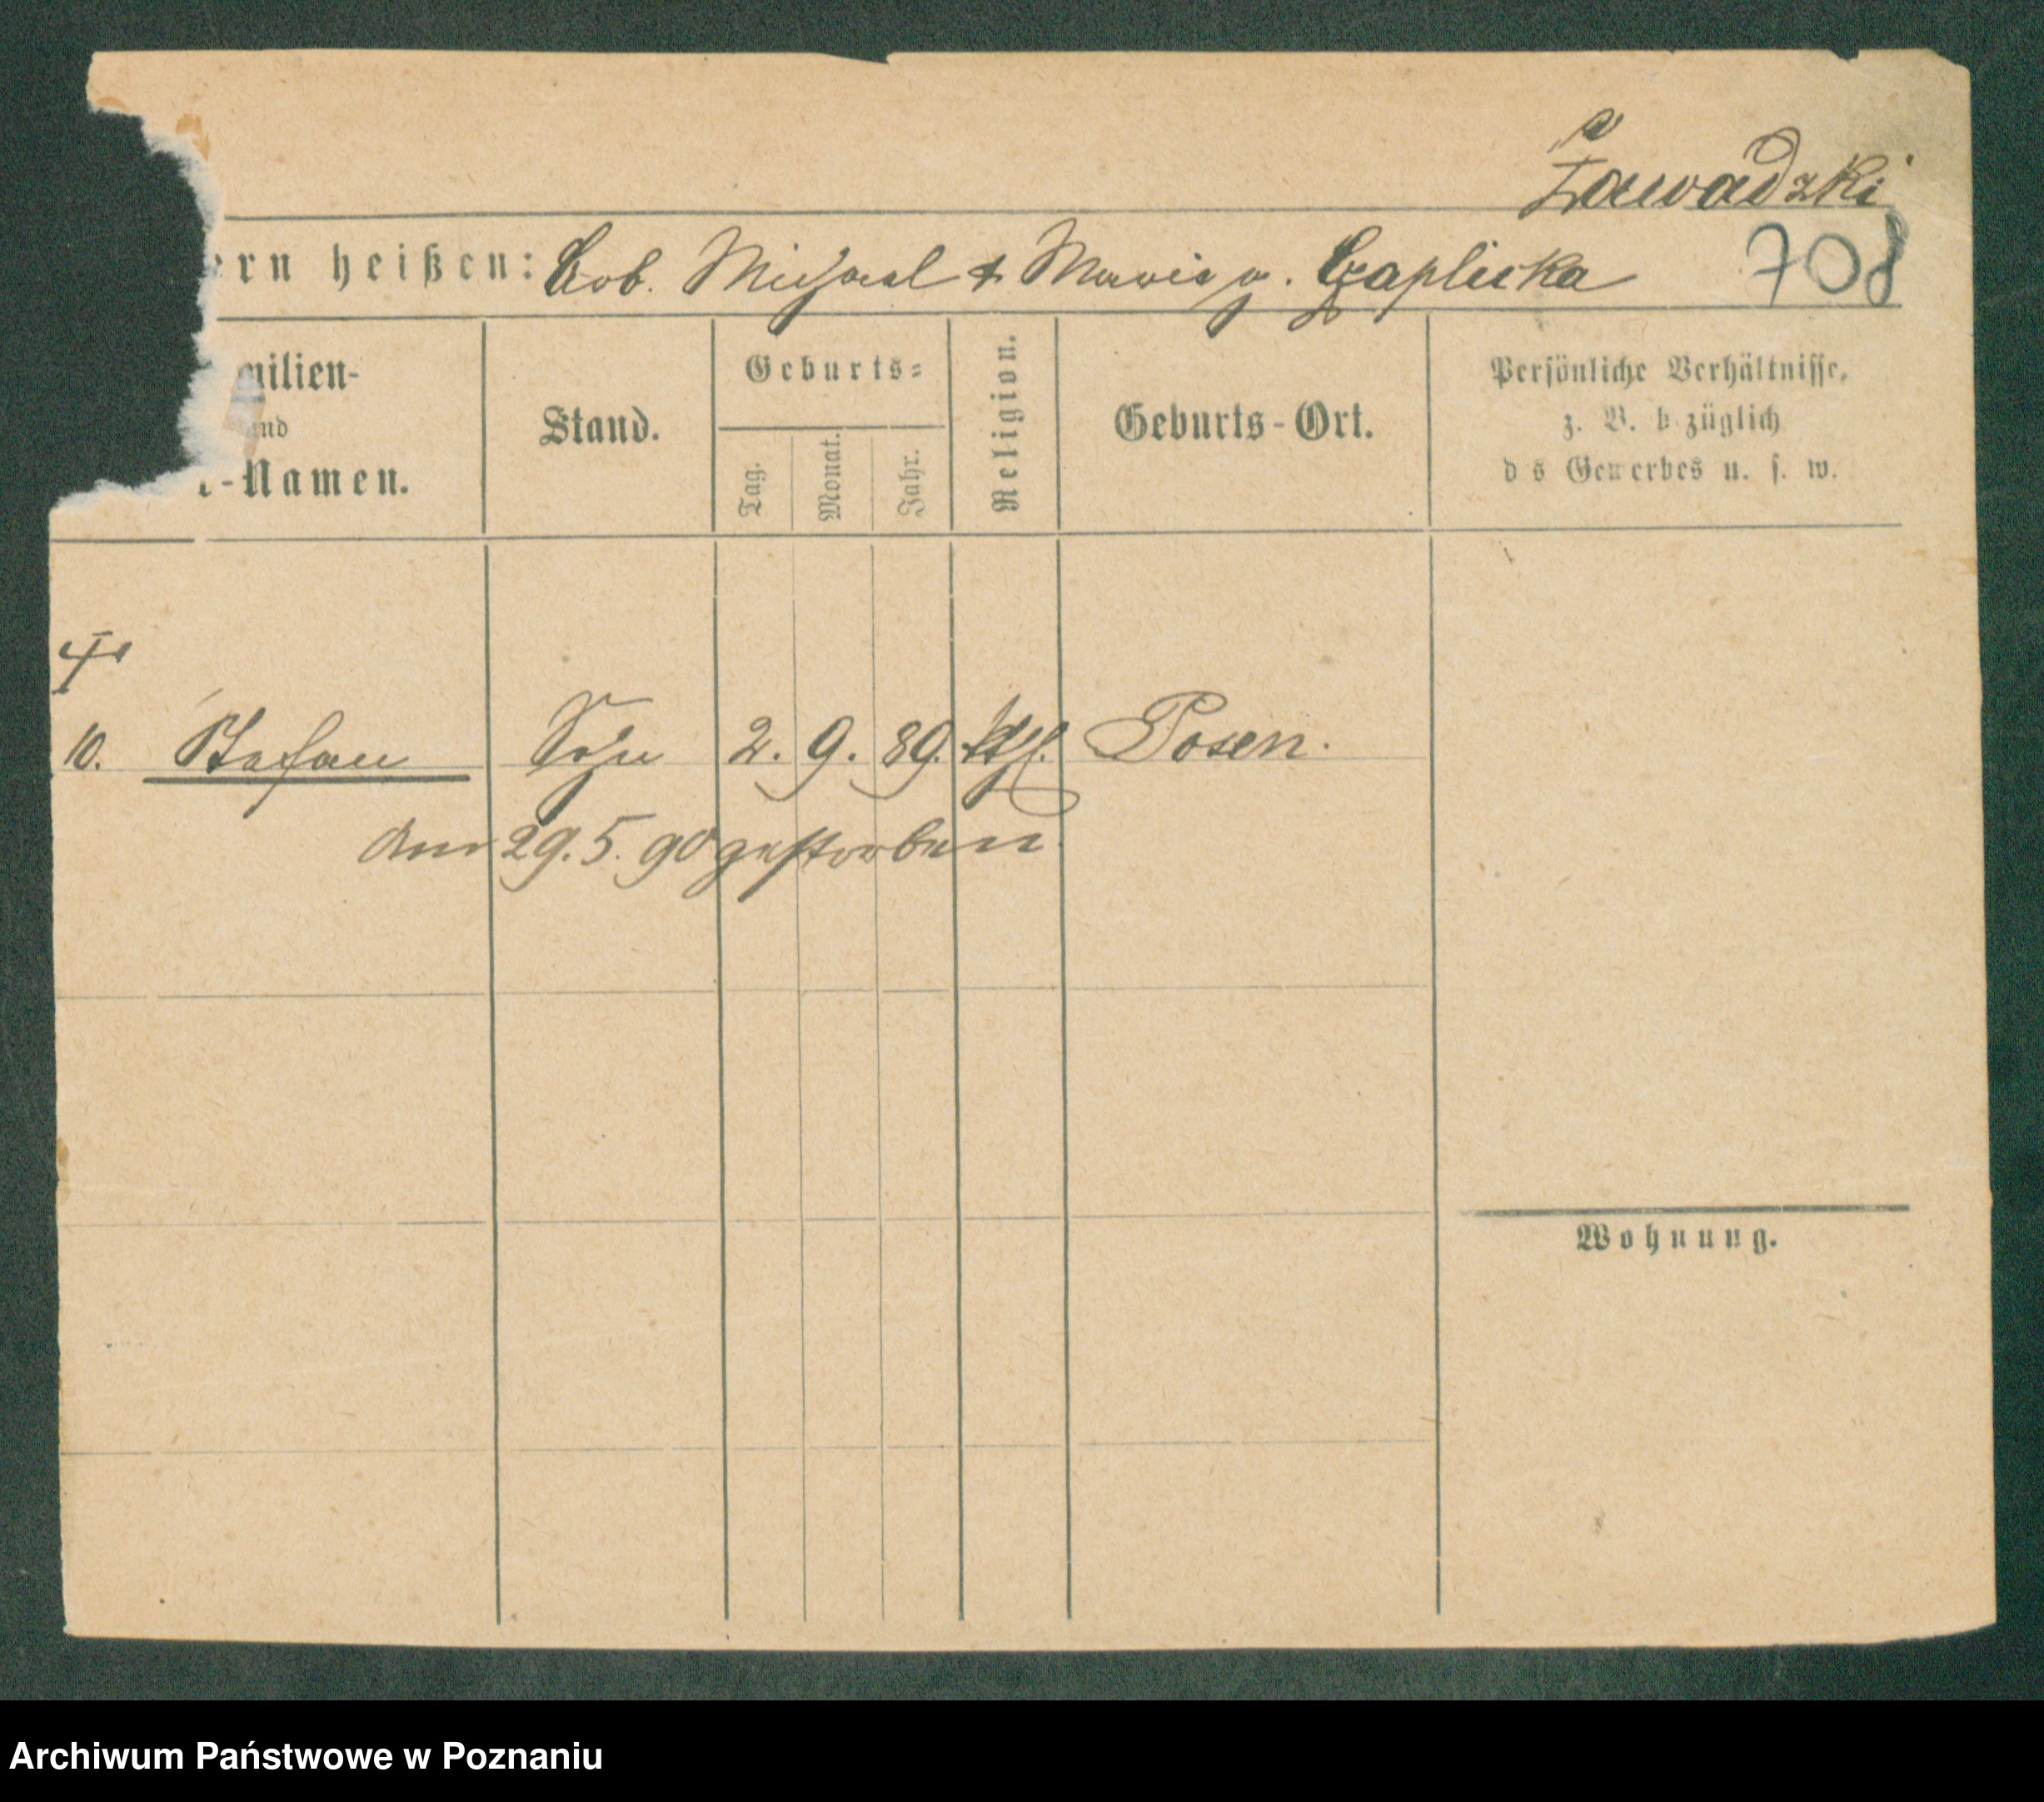 Zawadzki
ern heißen: Arb. Michael & Maria g. Czaplicka 708
milien-
und
-Namen.
Stand.
Geburts-
Tag.
Monat.
Jahr.
Religion.
Geburts-Ort.
Persönliche Verhältnisse,
z. B. b züglich
d s Gewerbes u. s. w.
10. Stefan Sohn 2. 9. 89. kth. Posen.
am 29. 5. 90 gestorben.
Wohnung.
Archiwum Państwowe w Poznaniu